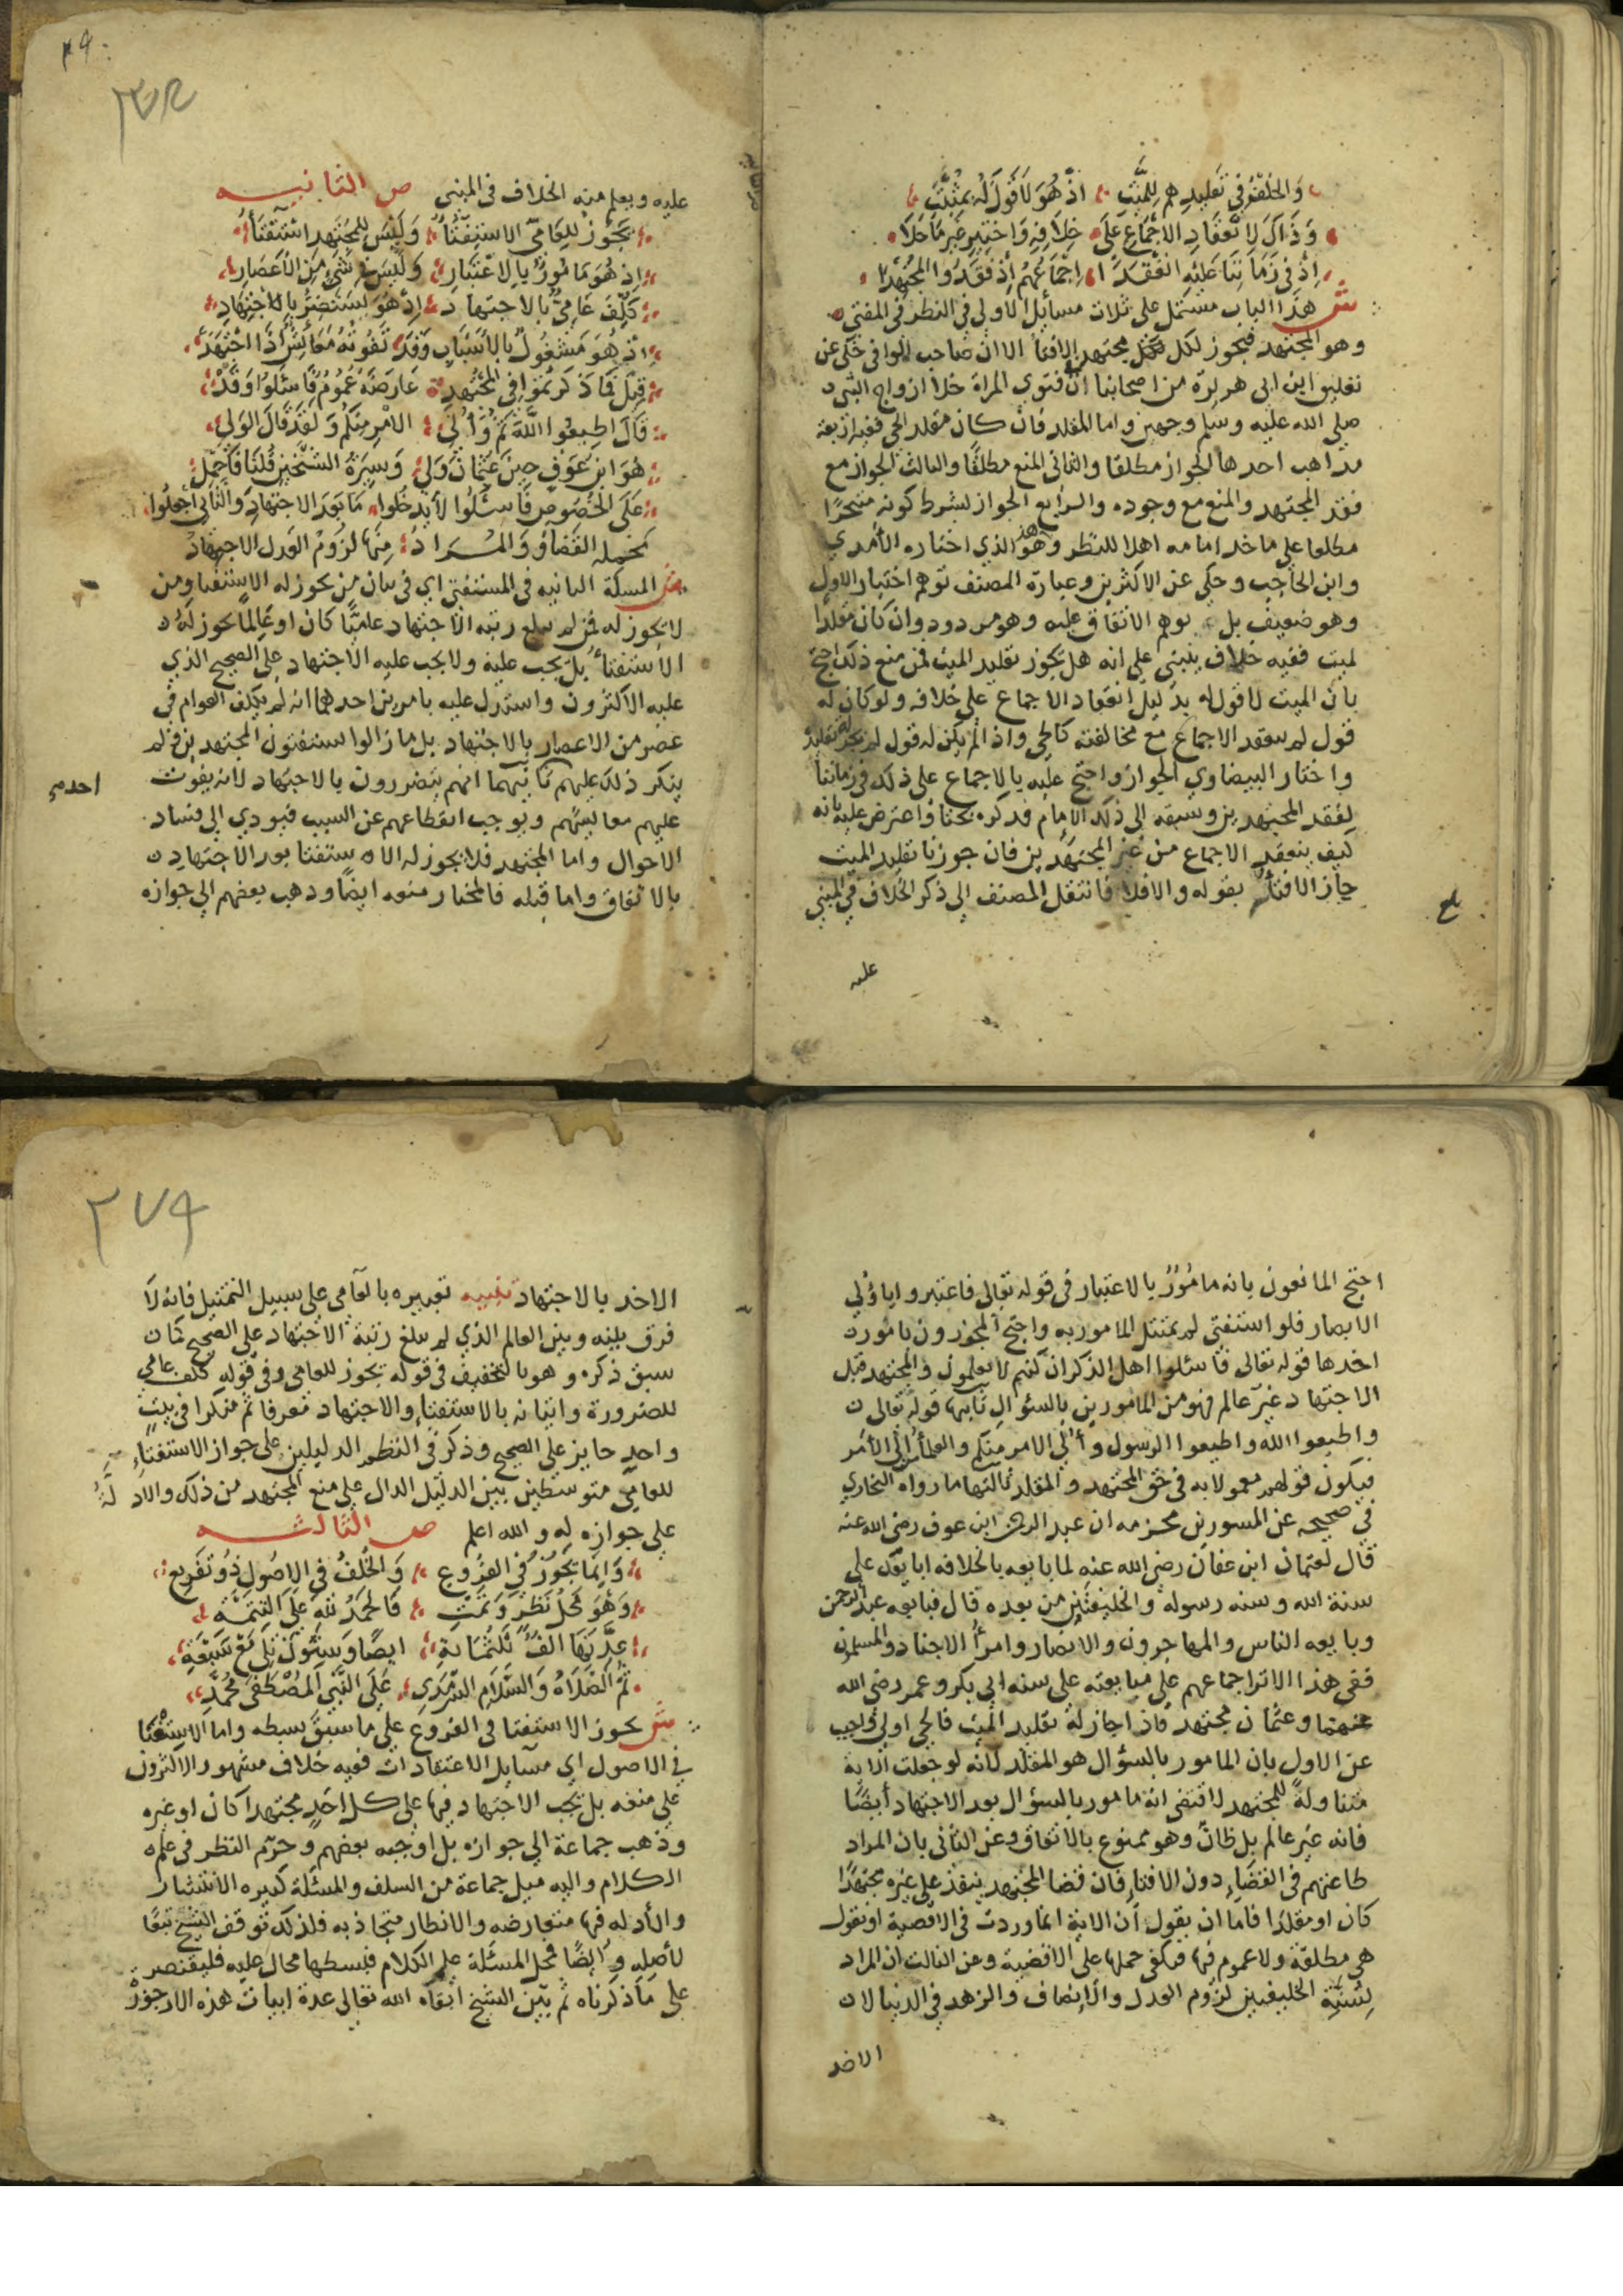 والخلف في تقليدهم للميت اذ هو لا قول له بمثبت
وذاك لانعقاد الاجماع على خلافه واختير غير ما خلا
اذ في زماننا عليه انعقدا اجماعهم اذ فقدوا المجتهدا
ش هذا الباب مشتمل على ثلاث مسايل الاولى في النظر في المفتي
وهو المجتهد فيجوز لكل مجتهد الافتا الا ان صاحب الوافي حكى عن
تعليق ابن ابي هريرة من اصحابنا ان فتوى المراة خلا ازواج النبي
صلى الله عليه وسلم وجهين واما المقلد فان كان مقلد الحي ففيه اربعة
مذاهب احدها الجواز مطلقا والثاني المنع مطلقا والثالث الجواز مع
فقد المجتهد والمنع مع وجوده والرابع الجواز بشرط كونه متبحرا
مطلعا على ماخذ امامه اهلا للنظر وهذا هو الذي اختاره الآمدي
وابن الحاجب وحكي عن الاكثرين وعبارة المصنف توهم اختيار الاول
وهو ضعيف بل يوهم الاتفاق عليه وهو مردود وان كان مقلدا
لميت ففيه خلاف ينبني على انه هل يجوز تقليد الميت فمن منع ذلك احتج
بان الميت لا قول له بدليل انعقاد الاجماع على خلافه ولو كان له
قول لم ينعقد الاجماع مع مخالفته كالحي واذا لم يكن له قول لم يجز تقليده
واختار البيضاوي الجواز واحتج عليه بالاجماع على ذلك في زماننا
لفقد المجتهدين وسبقه الى ذلك الامام فذكره بحثا واعترض عليه بانه
كيف ينعقد الاجماع من غير المجتهدين فان جوزنا تقليد الميت
جاز الافتاء بقوله والا فلا فانتقل المصنف الى ذكر الخلاف في المبني
بلغ
عليه
٢٧٨
عليه ويعلم منه الخلاف في المبني ص الثانيه
يجوز للعامي الاستفتاء وليس للمجتهد استفتاء
اذ هو مامور بالاعتبار وليس في شيء من الاعصار
كلف عامي بالاجتهاد اذ هو يستضر بالاجتهاد
اذ هو مشغول بالاسباب وقد تفوته معائش اذا اجتهد
قيل فما ذكرتموا في المجتهد عارضه عموم فاسئلوا وقد
قال اطيعوا الله ثم واولي الامر منكم ولقد قال الولي
هو ابن عوف حين عثمان ولي وسيرة الشيخين قلنا فاجمل
على الخصوص فاسئلوا لا يدخلوا ما بعد الاجتهاد والثاني اجعلوا
محمله القضاء والمراد منها لزوم العدل لا اجتهاد
ش المسلة الثانيه في المستفتي اي في بيان من يجوز له الاستفتا ومن
لا يجوز له فمن لم يبلغ رتبه الاجتهاد عاميا كان او عالما يجوز له
الاستفتاء بل يجب عليه ولا يجب عليه الاجتهاد على الصحيح الذي
عليه الاكثرون واستدل عليه بامرين احدهما انه لم يكلف العوام في
عصر من الاعصار بالاجتهاد بل ما زالوا يستفتون المجتهدين ولم
ينكر ذلك عليهم ثانيهما انهم يتضررون بالاجتهاد لانه يفوت
احدم
عليهم معايشهم ويوجب انقطاعهم عن السبب فيودي الى فساد
الاحوال واما المجتهد فلا يجوز له الاستفتا بعد الاجتهاد
بالاتفاق واما قبله فالمختار منعه ايضا وذهب بعضهم الى جوازه
احتج المانعون بانه مامور بالاعتبار في قوله تعالى فاعتبروا يا اولي
الابصار فلو استفتى لم يمتثل المامور به واحتج المجوزون بامور
احدها قوله تعالى فاسئلوا اهل الذكر ان كنتم لا تعلمون والمجتهد قبل
الاجتهاد غير عالم فهو من المامورين بالسؤال ثانيها قوله تعالى
واطيعوا الله واطيعوا الرسول واولي الامر منكم والعلماء اولي الامر
فيكون قولهم معمولا به في حق المجتهد والمقلد ثالثها ما رواه البخاري
في صحيحه عن المسور بن مخرمه ان عبد الرحمن ابن عوف رضي الله عنه
قال لعثمان ابن عفان رضي الله عنه لما بايعه بالخلافه ابايعك على
سنة الله وسنه رسوله والخليفتين من بعده قال فبايعه عبد الرحمن
وبايعه الناس والمهاجرون والانصار وامراء الاجناد والمسلمون
ففي هذا الاثر اجماعهم على مبايعته على سنه ابي بكر وعمر رضي الله
عنهما وعثمان مجتهد فاذا جاز له تقليد الميت فالحي اولى واجيب
عن الاول بان المامور بالسؤال هو المقلد لانه لو جعلت الاية
متناولة للمجتهد لاقتضى انه مامور بالسؤال بعد الاجتهاد أيضا
فانه غير عالم بل ظان وهو ممنوع بالاتفاق وعن الثاني بان المراد
طاعتهم في القضاء دون الافتاء فان قضا المجتهد ينفذ على غيره مجتهدا
كان او مقلدا فاما ان يقول ان الاية انما وردت في الاقضية او نقول
هي مطلقة ولا عموم فيها فيكفي حملها على الاقضية وعن الثالث ان المراد
بسنة الخليفتين لزوم العدل والانصاف والزهد في الدنيا لان
الاخذ
٢٧٩
الاخذ بالاجتهاد تنبيه تعبيره بالعامي على سبيل التمثيل فانه لا
فرق بينه وبين العالم الذي لم يبلغ رتبة الاجتهاد على الصحيح كما
سبق ذكره وهو بالتخفيف في قوله يجوز للعامي وفي قوله كلف عامي
للضرورة واتيانه بالاستفتاء والاجتهاد معرفا ثم منكرا في بيت
واحد جايز على الصحيح وذكر في النظم الدليلين على جواز الاستفتاء
للعامي متوسطين بين الدليل الدال على منع المجتهد من ذلك والادلة
على جوازه له والله اعلم ص الثالثه
وانما يجوز في الفروع والخلف في الاصول ذو تفريع
وهو محل نظر وتمت فالحمد لله على التتمة
عدتها الف ثلثماية ايضا وستون تلي مع سبعة
ثم الصلاة والسلام السرمدي على النبي المصطفى محمد
ش يجوز الاستفتا في الفروع على ما سبق بسطه واما الاستفتا
في الاصول اي مسايل الاعتقادات ففيه خلاف مشهور الاكثرون
على منعه بل يجب الاجتهاد فيها على كل احد مجتهدا كان او غيره
وذهب جماعة الى جوازه بل اوجبه بعضهم وحرم النظر في علم
الكلام واليه ميل جماعة من السلف والمسئلة كبيره الانتشار
والأدله فيها متعارضه والانظار متجاذبه فلذلك توقف الشيخ تبعا
لأصله وايضا فمحل المسئلة علم الكلام فبسطها محال عليه فليقتصر
على ما ذكرناه ثم بين الشيخ ابقاه الله تعالى عدة ابيات هذه الارجوزة